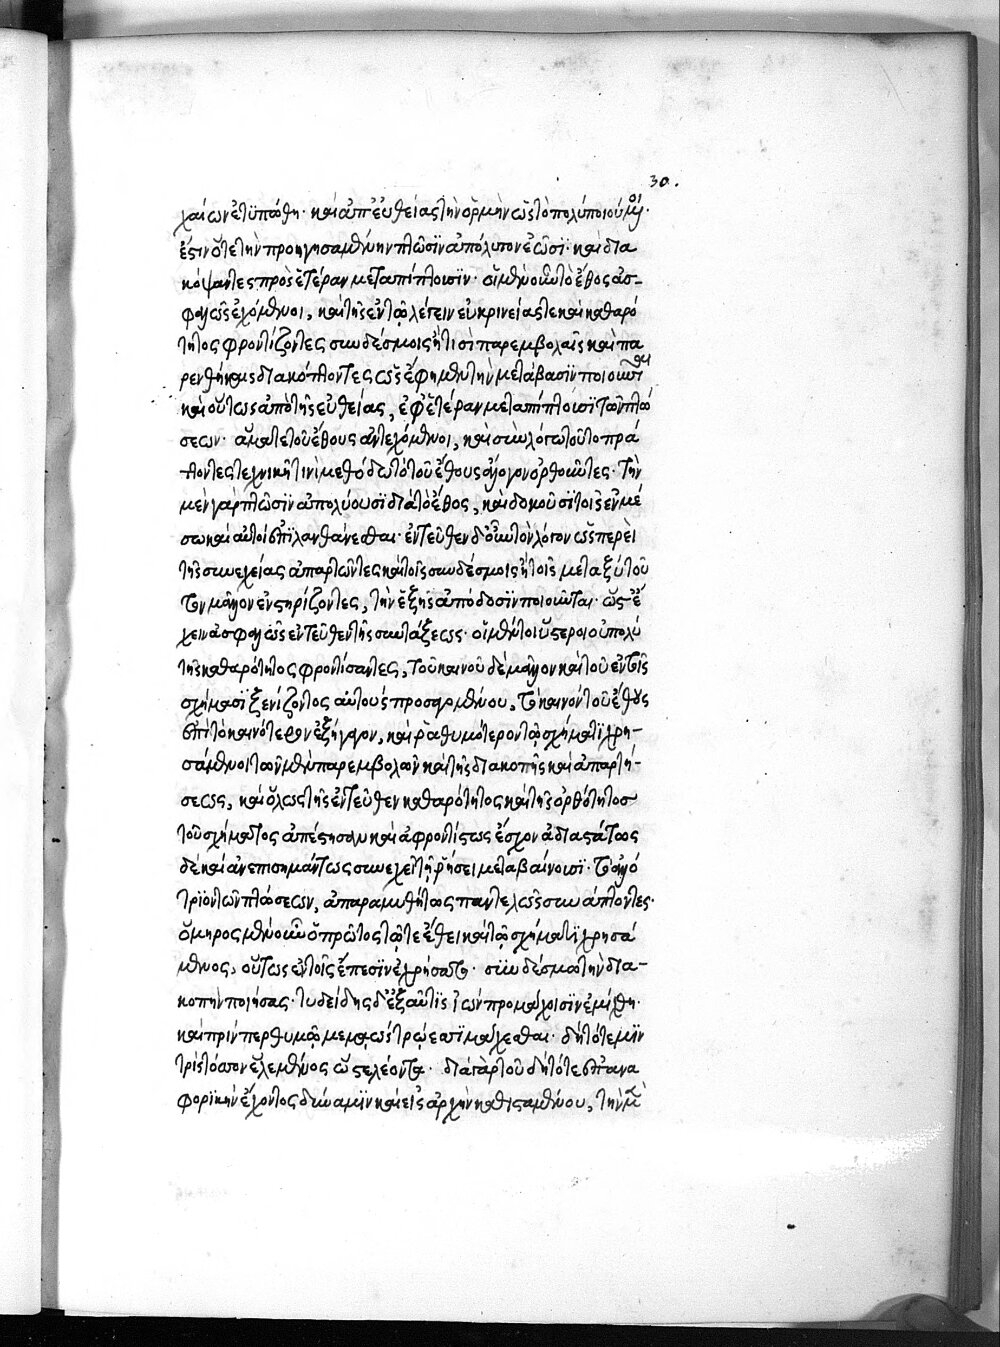 30.
χαίων ἐτυπώθη· καὶ ἀπ' εὐθείας τὴν ὁρμὴν ὡς τὸ πολὺ ποιούμενοι·
ἔστιν ὅτε τὴν προηγησαμένην πτῶσϊν ἀπόλυτον ἐῶσϊ· καὶ δια
κόψαντες πρὸς ἑτέραν μεταπίπτουσϊν· οἱ μὲν οὖν τὸ ἔθος ἀσ-
φαλῶς ἐχόμενοι, καὶ τῆς ἐν τῷ λέγειν εὐκρινείας τε καὶ καθαρό
τητος φροντίζοντες συνδέσμοις ἤτισὶ παρεμβολαῖς καὶ πα
ρενθήκαις διακόπτοντες ὡς ἔφημεν τὴν μετάβασϊν ποιοῦνται
καὶ οὕτως ἀπὸ τῆς εὐθείας, ἐφ' ἑτέραν μεταπίπτουσϊ τῶν πτώ
σεων· ἅμα τε τοῦ ἔθους ἀντεχόμενοι, καὶ σὺν λόγω τοῦτο πρά
ττοντες τεχνικῇ τινὶ μεθόδω τὸ τοῦ ἔθους ἄλογον ὀρθοῦντες· τὴν
μὲν γὰρ πτῶσϊν ἀπολύουσϊ διὰ τὸ ἔθος, καὶ δοκοῦσϊ τοῖς ἐν μέ
σω καὶ αὐτοὶ ἐπϊλανθάνεσθαι· ἐντεῦθεν δ' οὖν τὸν λόγον ὥσπερεὶ
τῆς συνεχείας ἀπαρτῶντες καὶ τοῖς συνδέσμοις ἢ τοῖς μεταξὺ τοῦ
τον μᾶλλον ἐνστηρίζοντες, τὴν ἕξῆς ἀπόδοσϊν ποιοῦνται· ὡς ἔ
χειν ἀσφαλῶς ἐντεῦθεν τῆς συντάξεως· οἱ μέντοι ὕστεροι οὐ πολὺ
τῆς καθαρότητος φροντίσαντες, τοῦ καινοῦ δὲ μᾶλλον καὶ τοῦ ἐν τοῖς
σχήμασϊ ξενίζοντος αὐτοὺς προσαγομένου, τὸ καινὸν τοῦ ἔθους
ἐπὶ τὸ καινότερον ἐξήγαγον, καὶ ῥαθυμότερον τῷ σχήματϊ χρη-
σάμενοι τῶν μὲν παρεμβολῶν καὶ τῆς διακοπῆς καὶ ἀπαρτή-
σεως, καὶ ὅλως τῆς ἐντεῦθεν καθαρότητος καὶ τῆς ὀρθότητος
τοῦ σχήματος ἀπέστησαν καὶ ἀφροντίστως ἔσχον ἀδιαστάτως
δὲ καὶ ἀνεπισημάντως συνεχεῖ τῇ ῥήσει μεταβαίνουσϊ· τὸ ἀλλό
τρϊον τῶν πτώσεων, ἀπαραμυθήτως παντελῶς συνάπτοντες·
ὅμηρος μὲν οὖν ὁ πρῶτος τῷτε ἔθει καὶ τῷ σχήματϊ χρησά
μενος, οὕτως ἐν τοῖς ἔπεσϊν ἐχρήσατο· σϋνδέσμω τὴν δια-
κοπὴν ποιήσας· τυδείδης δ' ἐξαῦτϊς ἰὼν προμάχοισϊν ἐμίχθη·
καὶ πρίν περ θυμῷ μεμαὼς τρώεσσϊ μάχεσθαι· δὴ τότε μϊν
τρὶς τόσσον ἕλεν μένος ὥστε λέοντα· διὰ γὰρ τοῦ δὴ τότε ἐπανα
φορϊκὴν ἔχοντος δύναμϊν καὶ εἰς ἀρχὴν καθισταμένου, τὴν μὲν